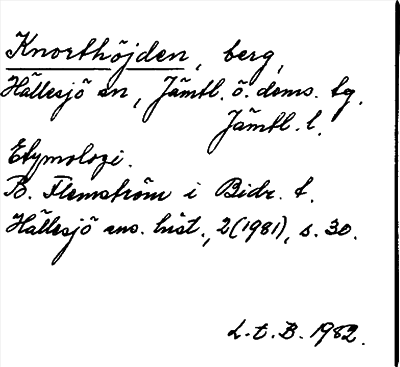 Knorthöjden, berg,
Hällesjö sn, Jämtl. ö. doms. tg.
Jämtl. l.
Etymologi.
B. Flemström i Bidr. t.
Hällesjö sns. hist., 2(1981), s. 30.
L. t. B. 1982.